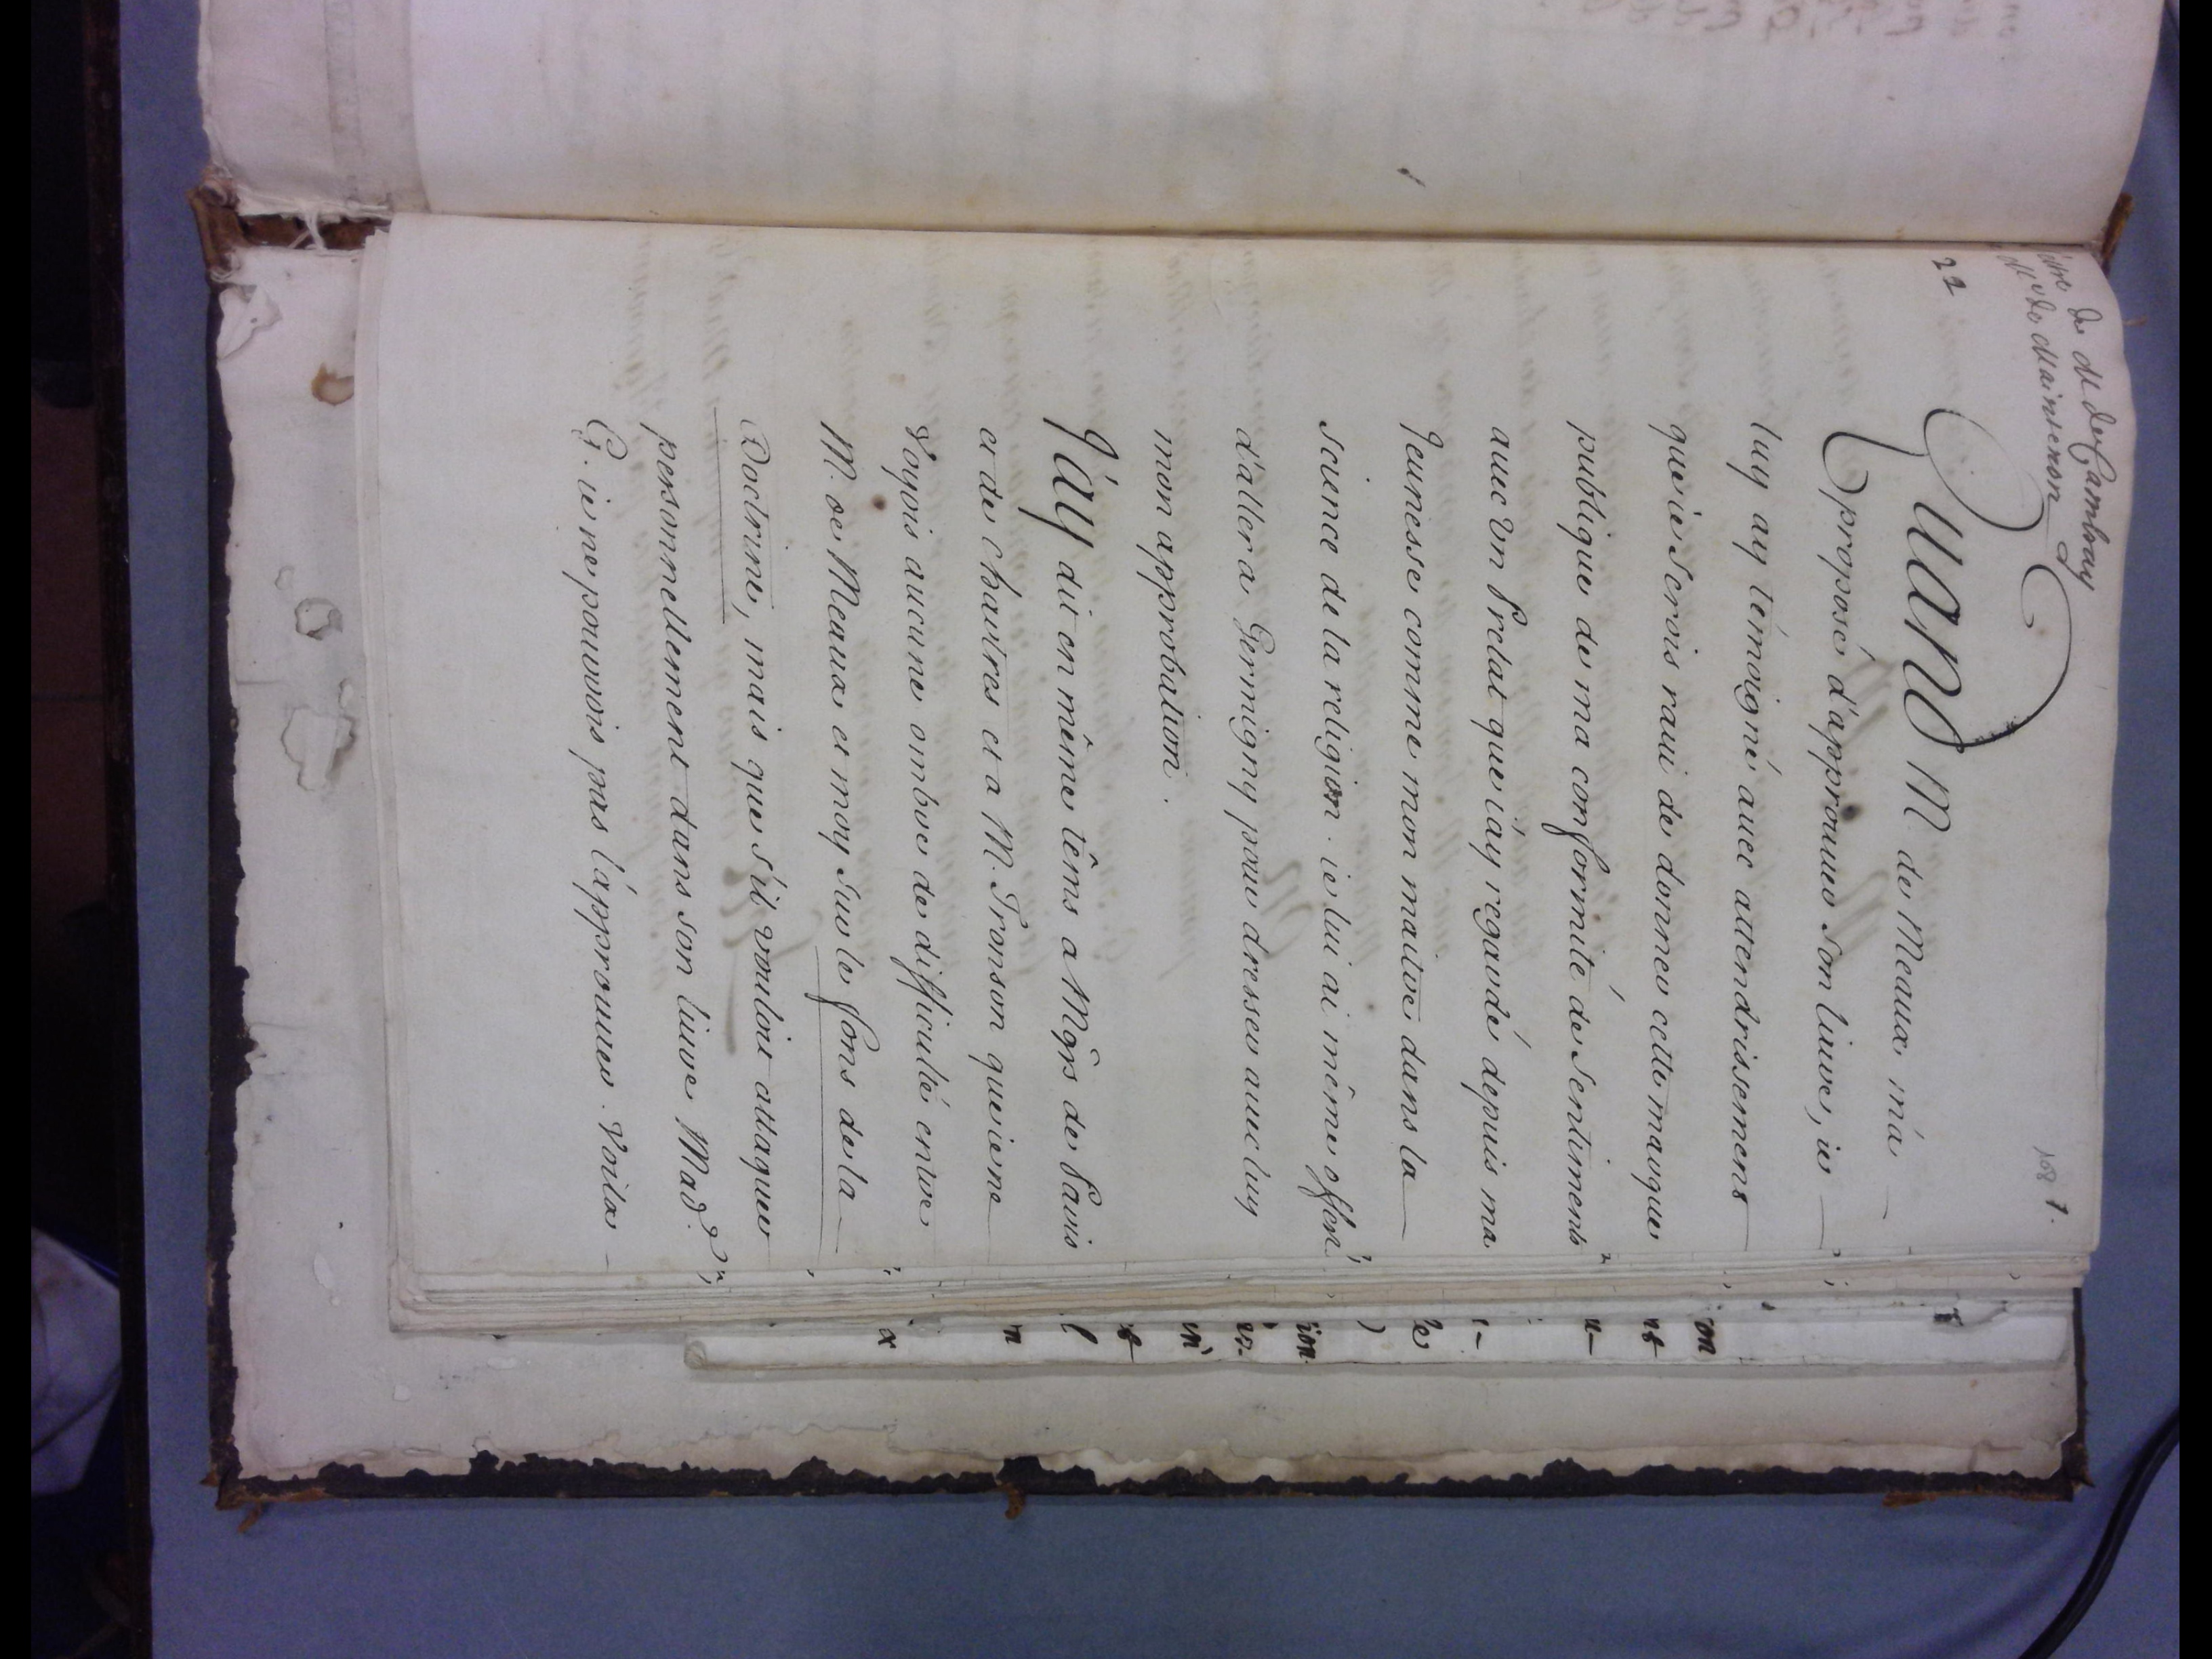 de M de Cambray
de Maintenon
22
1.
Quand M. de Meaux m'a
proposé d'approuuer son liure, ie
luy ay témoigné auec attendrissement
que ie serois raui de donner cette marque
publique de ma conformité de sentiments
auec vn Prelat que i'ay regardé depuis ma
Jeunesse comme mon maitre dans la
science de la religion. ie lui ai même offert
d'aller a Germigny pour dresser auec luy
mon approbation.
J'ay dit en même têms a Mgrs de Paris
et de Chartres et a M. Tronson que ie ne
Voyois aucune ombre de difficulté entre
M. de Meaux et moy sur le fons de la
Doctrine, mais que s'il vouloit attaquer
personnellement dans son liure Mad.
G. ie ne pourrois pas l'approuuer. Voila